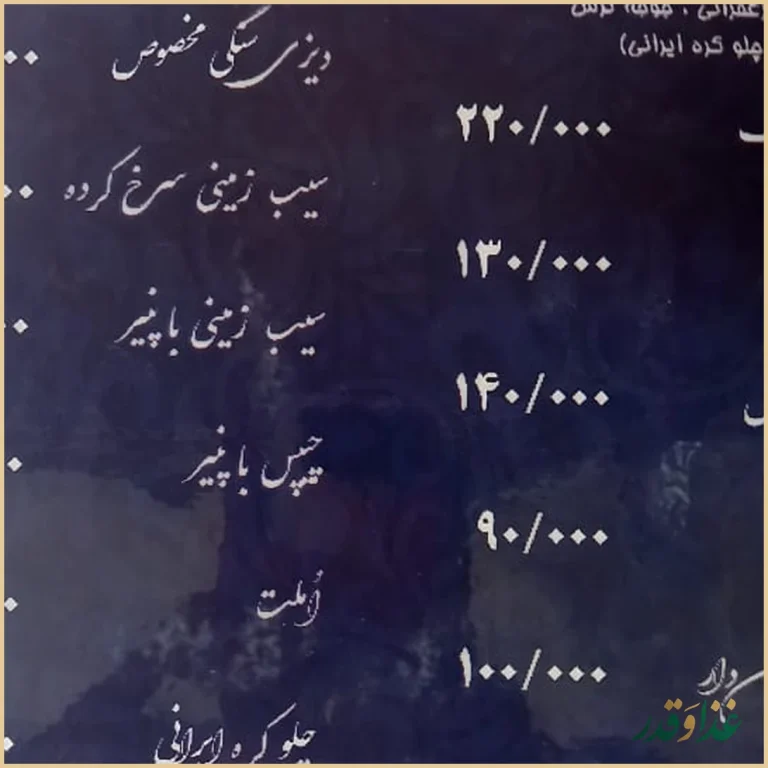 چلو کره ایرانی)
۲۲۰/۰۰۰
۱۳۰/۰۰۰
۱۴۰/۰۰۰
۹۰/۰۰۰
۱۰۰/۰۰۰
دیزی سنگی مخصوص
سیب زمینی سرخ کرده
سیب زمینی با پنیر
چیپس با پنیر
اُملت
چلو کره ایرانی
غذا و قدر